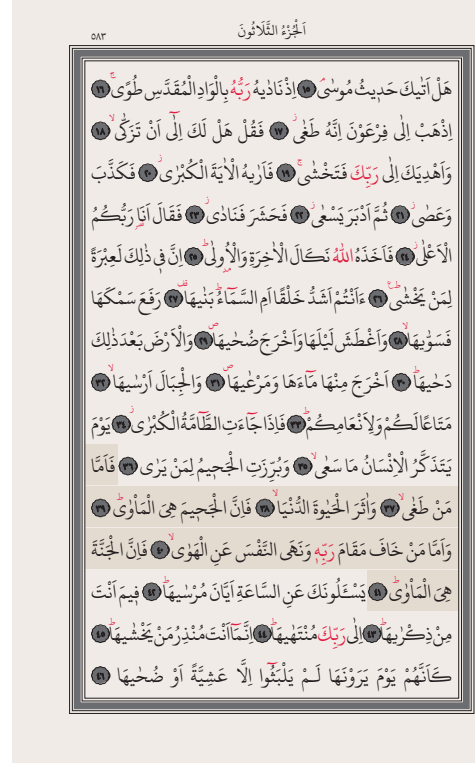 اَلْجُزْءُ الثَّلَاثُونَ
٥٨٣
هَلْ اَتٰيكَ حَد۪يثُ مُوسٰىۢ ﴿١٥﴾ اِذْ نَادٰيهُ رَبُّهُ بِالْوَادِ الْمُقَدَّسِ طُوًىۚ ﴿١٦﴾
اِذْهَبْ اِلٰى فِرْعَوْنَ اِنَّهُ طَغٰىۘ ﴿١٧﴾ فَقُلْ هَلْ لَكَ اِلٰٓى اَنْ تَزَكّٰىۙ ﴿١٨﴾
وَاَهْدِيَكَ اِلٰى رَبِّكَ فَتَخْشٰىۚ ﴿١٩﴾ فَاَرٰيهُ الْاٰيَةَ الْكُبْرٰىۘ ﴿٢٠﴾ فَكَذَّبَ
وَعَصٰىۘ ﴿٢١﴾ ثُمَّ اَدْبَرَ يَسْعٰىۘ ﴿٢٢﴾ فَحَشَرَ فَنَادٰىۘ ﴿٢٣﴾ فَقَالَ اَنَا۬ رَبُّكُمُ
الْاَعْلٰىۘ ﴿٢٤﴾ فَاَخَذَهُ اللّٰهُ نَكَالَ الْاٰخِرَةِ وَالْاُو۫لٰىۜ ﴿٢٥﴾ اِنَّ ف۪ي ذٰلِكَ لَعِبْرَةً
لِمَنْ يَخْشٰىۜ۟ ﴿٢٦﴾ ءَاَنْتُمْ اَشَدُّ خَلْقًا اَمِ السَّمَٓاءُۜ بَنٰيهَا۠ ﴿٢٧﴾ رَفَعَ سَمْكَهَا
فَسَوّٰيهَاۙ ﴿٢٨﴾ وَاَغْطَشَ لَيْلَهَا وَاَخْرَجَ ضُحٰيهَاۖ ﴿٢٩﴾ وَالْاَرْضَ بَعْدَ ذٰلِكَ
دَحٰيهَاۜ ﴿٣٠﴾ اَخْرَجَ مِنْهَا مَٓاءَهَا وَمَرْعٰيهَاۖ ﴿٣١﴾ وَالْجِبَالَ اَرْسٰيهَاۙ ﴿٣٢﴾
مَتَاعًا لَكُمْ وَلِاَنْعَامِكُمْۜ ﴿٣٣﴾ فَاِذَا جَٓاءَتِ الطَّٓامَّةُ الْكُبْرٰىۘ ﴿٣٤﴾ يَوْمَ
يَتَذَكَّرُ الْاِنْسَانُ مَا سَعٰىۙ ﴿٣٥﴾ وَبُرِّزَتِ الْجَح۪يمُ لِمَنْ يَرٰى ﴿٣٦﴾ فَاَمَّا
مَنْ طَغٰىۙ ﴿٣٧﴾ وَاٰثَرَ الْحَيٰوةَ الدُّنْيَاۙ ﴿٣٨﴾ فَاِنَّ الْجَح۪يمَ هِيَ الْمَأْوٰىۜ ﴿٣٩﴾
وَاَمَّا مَنْ خَافَ مَقَامَ رَبِّه۪ وَنَهَى النَّفْسَ عَنِ الْهَوٰىۙ ﴿٤٠﴾ فَاِنَّ الْجَنَّةَ
هِيَ الْمَأْوٰىۜ ﴿٤١﴾ يَسْـَٔلُونَكَ عَنِ السَّاعَةِ اَيَّانَ مُرْسٰيهَاۜ ﴿٤٢﴾ ف۪يمَ اَنْتَ
مِنْ ذِكْرٰيهَاۜ ﴿٤٣﴾ اِلٰى رَبِّكَ مُنْتَهٰيهَاۜ ﴿٤٤﴾ اِنَّمَٓا اَنْتَ مُنْذِرُ مَنْ يَخْشٰيهَاۜ ﴿٤٥﴾
كَاَنَّهُمْ يَوْمَ يَرَوْنَهَا لَمْ يَلْبَثُٓوا اِلَّا عَشِيَّةً اَوْ ضُحٰيهَا ﴿٤٦﴾